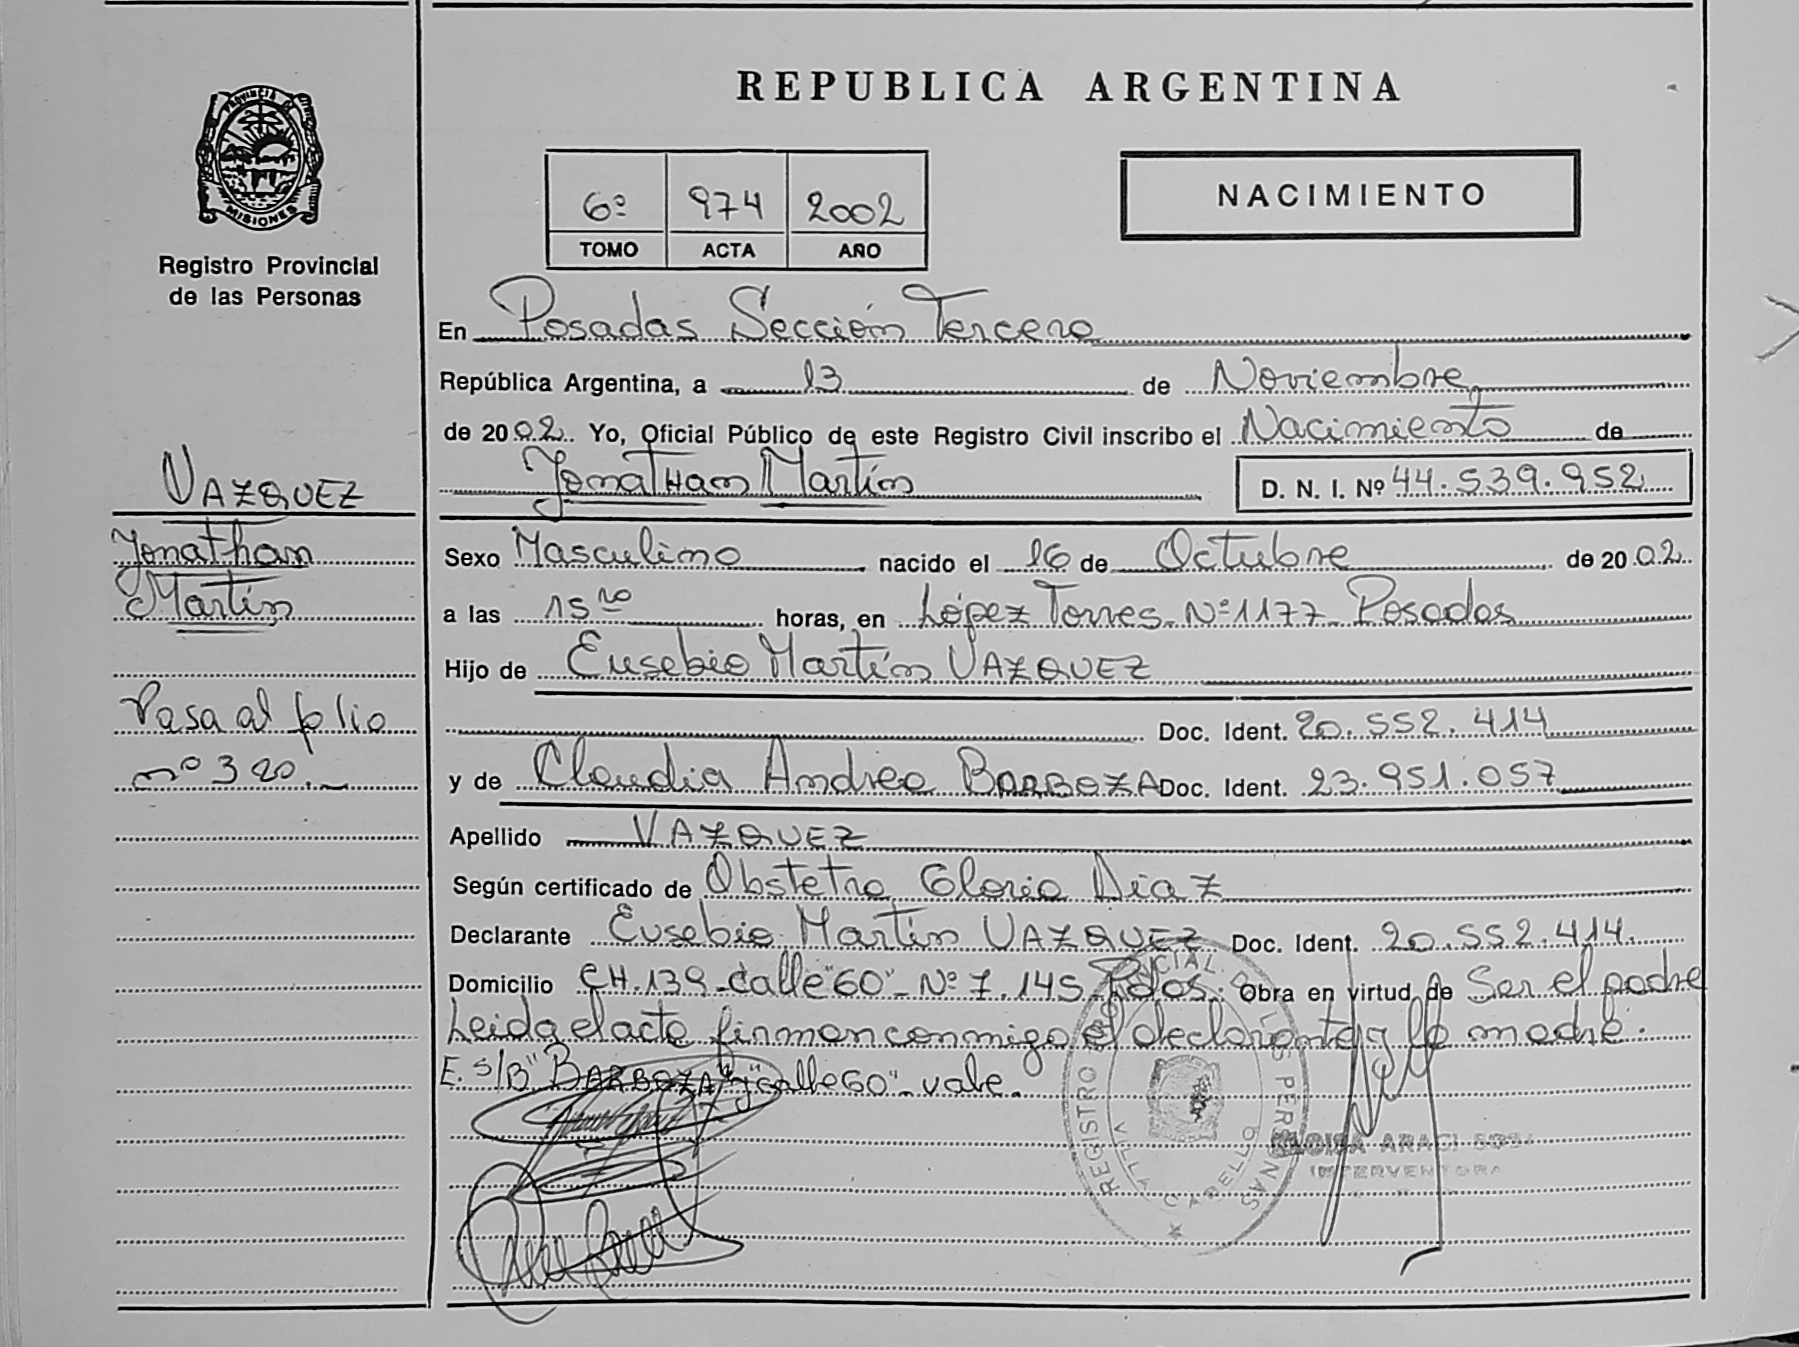 REPUBLICA ARGENTINA
PROVINCIA DE
MISIONES
Registro Provincial
de las Personas
NACIMIENTO
6º 974 2002
TOMO ACTA AÑO
En Posadas Sección Tercera
República Argentina, a 13 de Noviembre
de 2002. Yo, Oficial Público de este Registro Civil inscribo el Nacimiento de
Jonathan Martín D. N. I. Nº 44.539.952
VAZQUEZ
Jonathan
Martín
Pasa al folio
nº 320.
Sexo Masculino nacido el 16 de Octubre de 2002.
a las 15 horas, en López Torres Nº 1177 Posadas
Hijo de Eusebio Martín VAZQUEZ
Doc. Ident. 20.552.414
y de Claudia Andrea BARBOZA Doc. Ident. 23.951.057
Apellido VAZQUEZ
Según certificado de Obstetra Gloria Diaz
Declarante Eusebio Martín VAZQUEZ Doc. Ident. 20.552.414.
Domicilio CH.139-calle "60"- Nº 7.145 Pdas. Obra en virtud de Ser el padre
Leida el acta firman conmigo el declarante y la madre.
E. S/B "BARBOZA" y "calle 60" - vale.
REGISTRO PROVINCIAL DE LAS PERSONAS
VILLA CABELLO
ARACI
INTERVENTORA